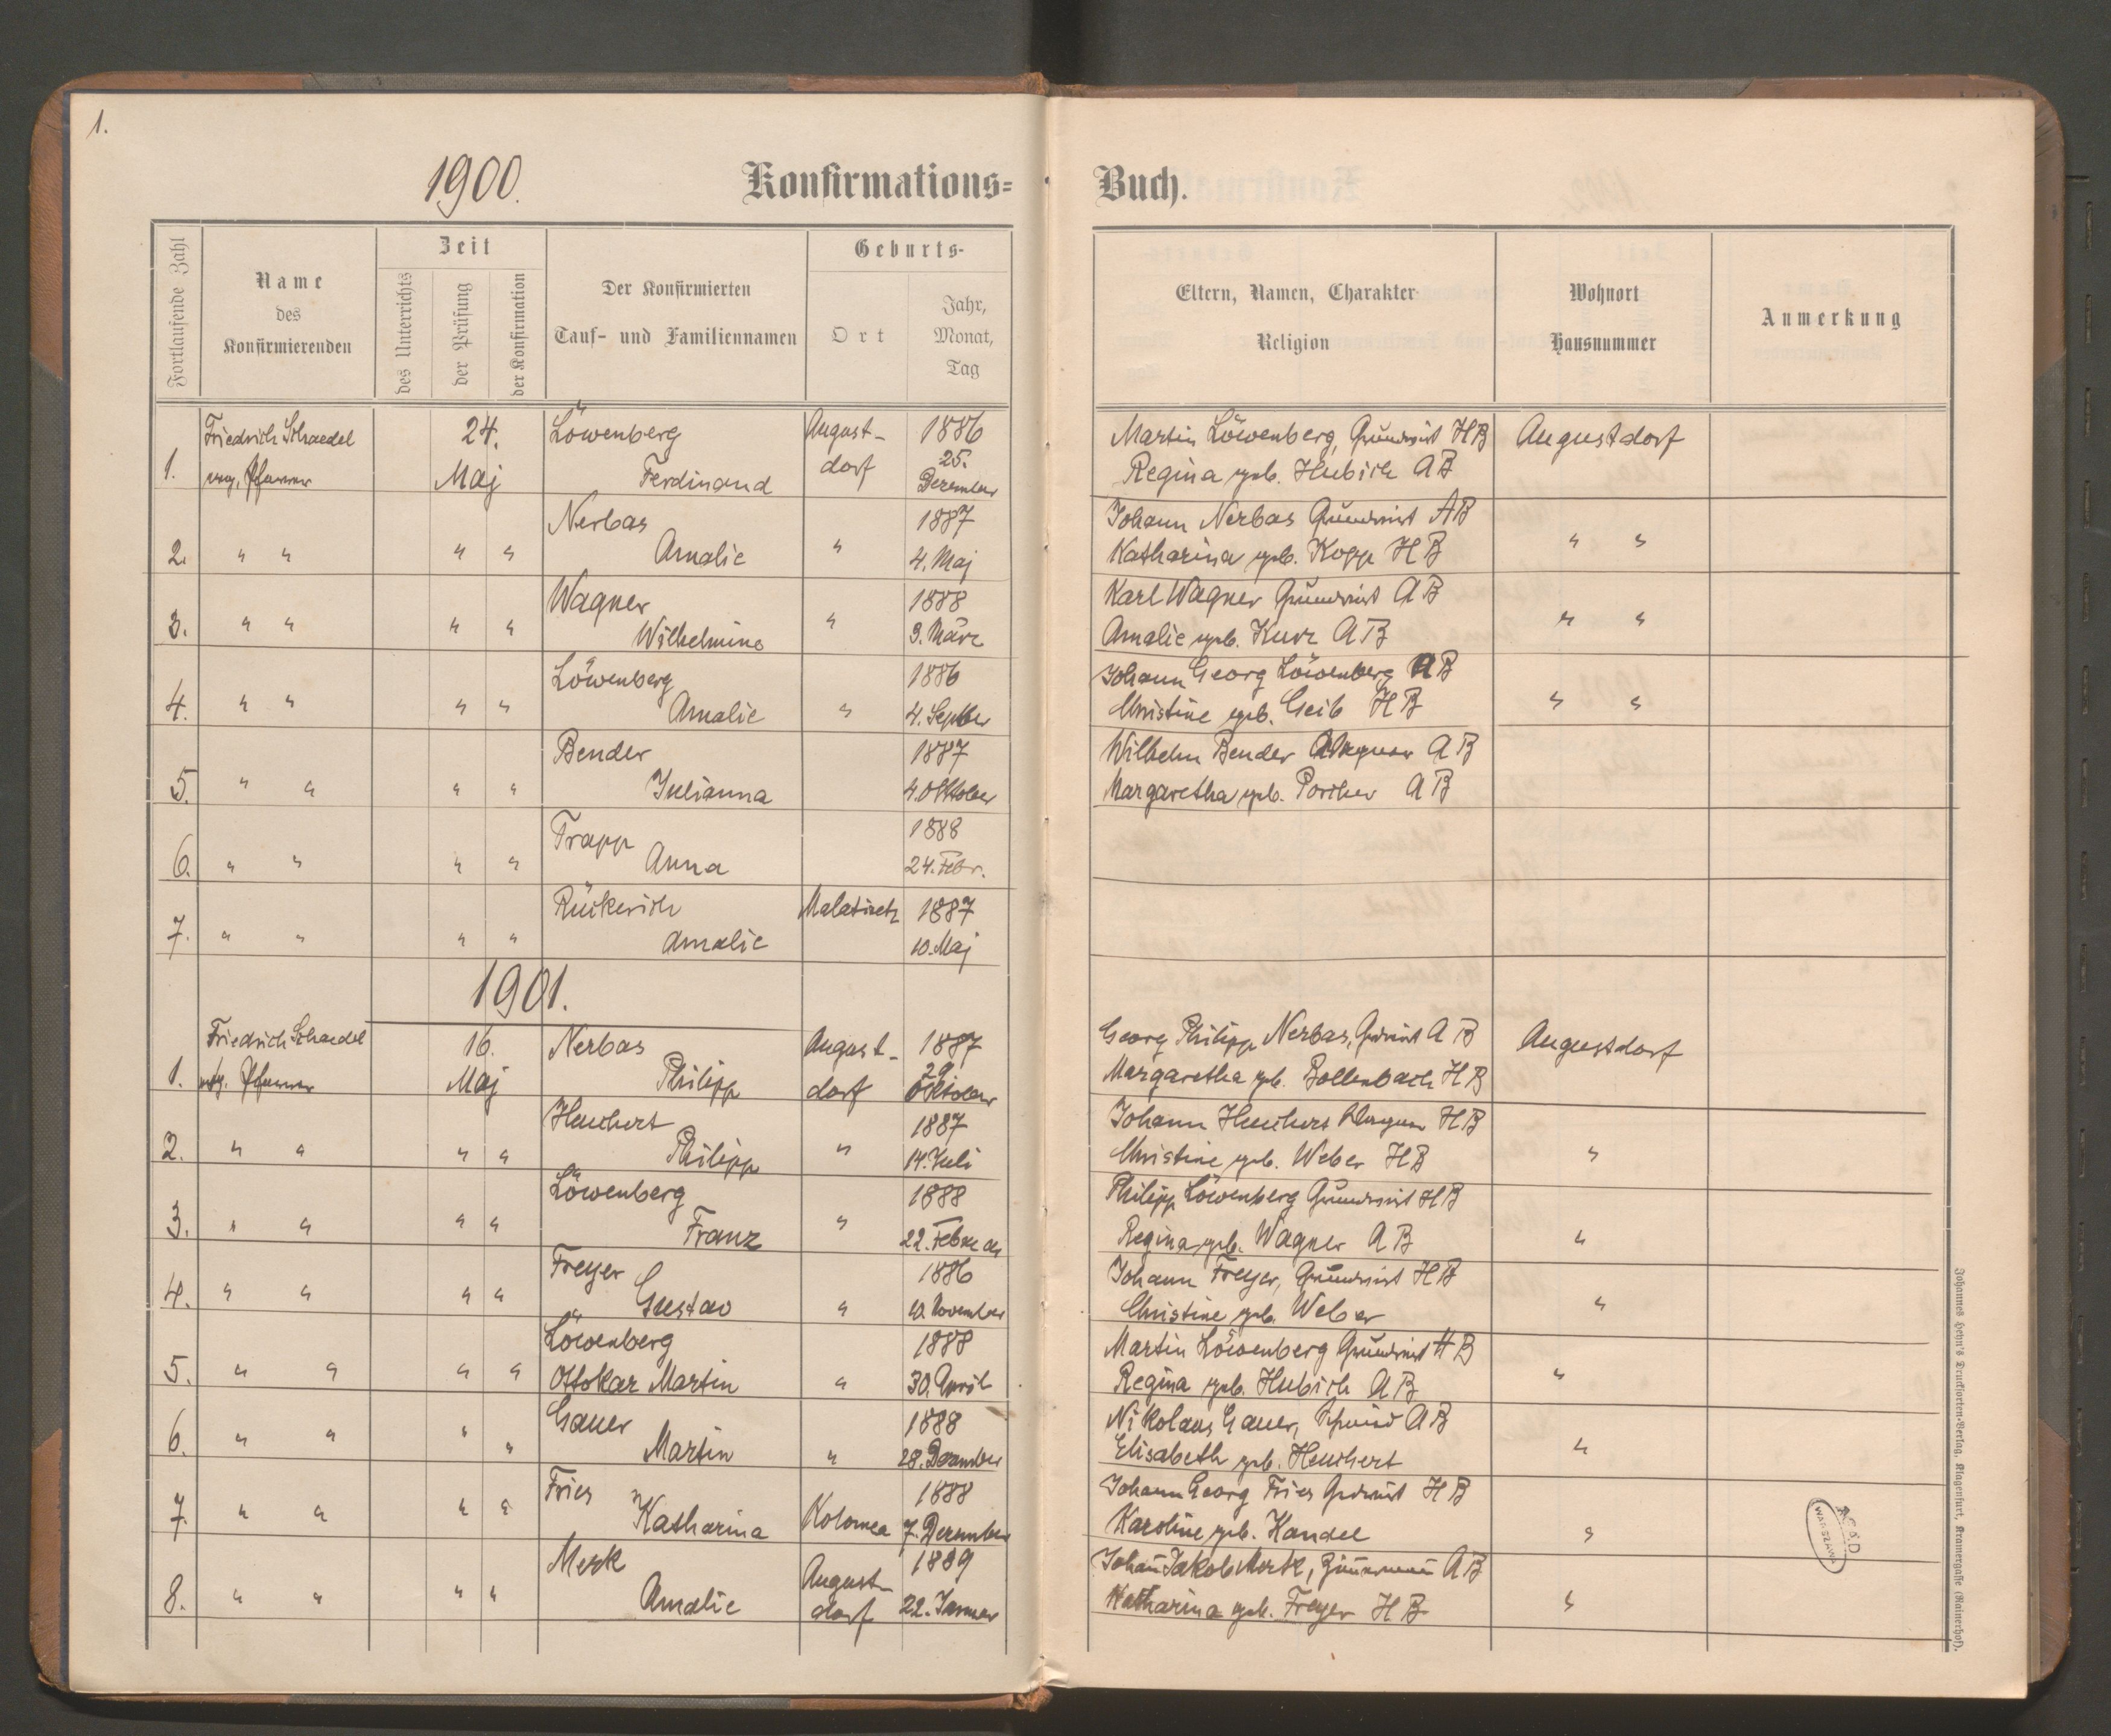 1.
1900.
Konfirmations=
Buch.
Fortlaufende Zahl
Name
des
Konfirmierenden
Zeit
des Unterrichts
der Prüfung
der Konfirmation
Der Konfirmierten
Tauf- und Familiennamen
Geburts-
Ort
Jahr,
Monat,
Tag
Eltern, Namen, Charakter
Religion
Wohnort
Hausnummer
Anmerkung
Friedrich Schaedel 24. Löwenberg August- 1886 Martin Löwenberg, Grundwirt HB Augustdorf
1. evg. Pfarrer Maj Ferdinand dorf 25. Dezember Regina geb. Hubich AB
Nerbas 1887 Johann Nerbas Grundwirt AB
2. " " " " Amalie " 4. Maj Katharina geb. Kopp HB " "
Wagner 1888 Karl Wagner Grundwirt AB
3. " " " " Wilhelmine " 9. März Amalie geb. Kurz AB " "
Löwenberg 1886 Johann Georg Löwenberg AB
4. " " " " Amalie " 4. Septber Christine geb. Geib HB " "
Bender 1887 Wilhelm Bender AB
5. " " " " Julianna 4. Oktober Margaretha geb. AB
Trapp 1888
6. " " " " Anna 24. Febr.
Rückerich 1887
7. " " " " Amalie 10. Maj
1901.
Friedrich Schaedel 16. Nerbas August- 1887 Georg Philipp Nerbas, Grdwirt AB Augustdorf
1. evg. Pfarrer Maj Philipp dorf 29. Oktober Margaretha geb. Bollenbach HB
Heuchert 1887 Johann Heuchert HB
2. " " " " Philipp " 14. Juli Christine geb. Weber HB "
Löwenberg 1888 Philipp Löwenberg Grundwirt HB
3. " " " " Franz " 22. Februar Regina geb. Wagner AB "
Freyer 1886 Johann Freyer, Grundwirt HB
4. " " " " Gustav " 10. November Christine geb. Weber "
Löwenberg 1888 Martin Löwenberg Grundwirt HB
5. " " " " Ottokar Martin " 30. April Regina geb. Hubich AB "
Gauer 1888 Nikolaus Gauer, Schmied AB
6. " " " " Martin " 28. Dezember Elisabeth geb. Heuchert "
Fries 1888 Johann Georg Fries Grdwirt HB
7. " " " " Katharina Kolomea 7. Dezember Karoline geb. Kandel "
Merk August- 1889 Johann Jakob Merk, Zimmermann AB
8. " " " " Amalie dorf 22. Januar Katharina geb. Freyer HB "
AGAD
WARSZAWA
Johannes Heyn's Drucksorten-Verlag, Klagenfurt, Kramergasse (Rainerhof).